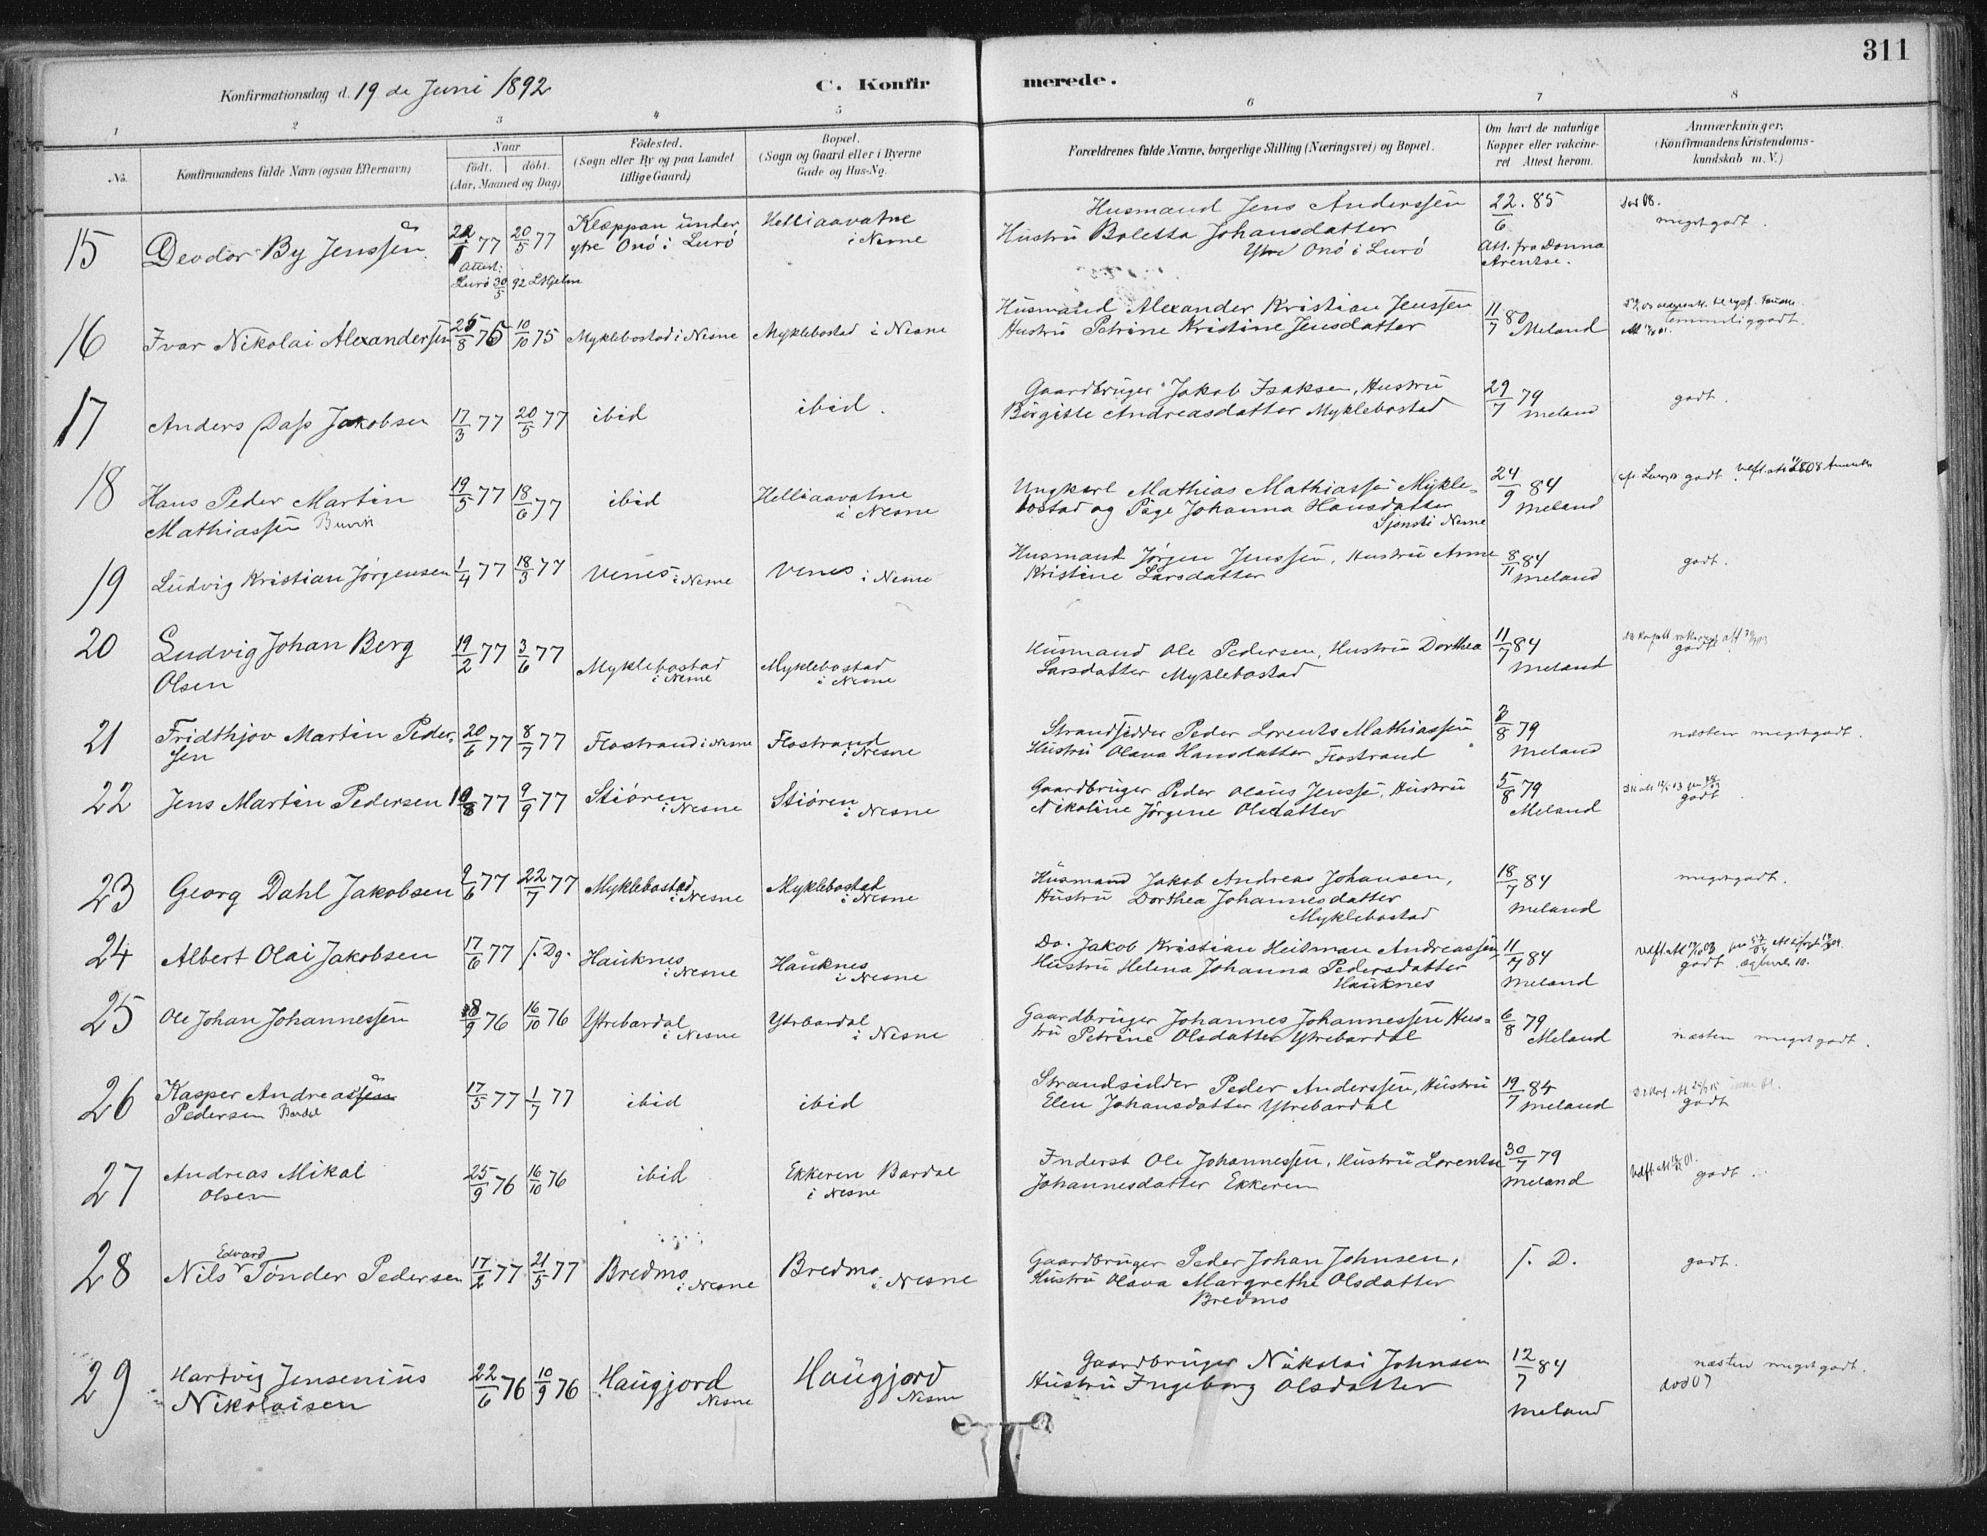 311
Konfirmationsdag d. 19 de Juni 1892
C. Konfirmerede.
1 2 3 4 5 6 7 8
No. Konfirmandens fulde Navn (ogsaa Efternavn)
Naar
født. døbt.
(Aar, Maaned og Dag)
Fødested.
(Sogn eller By og paa Landet
tillige Gaard)
Bopæl.
(Sogn og Gaard eller i Byerne
Gade og Hus-No.
Forældrenes fulde Navne, borgerlige Stilling (Næringsvei) og Bopæl.
Om havt de naturlige
Kopper eller vakcine-
ret Attest herom.
Anmærkninger,
(Konfirmandens Kristendoms-
kundskab m. V.)
15 Deodor By Jenssen 77 20/5 77 Klæppan under
ytre Onö i Lurö
Helliaavatne
i Nesne
Husmand Jens Anderssen
Hustru Boletta Johansdatter
Ytre Onö i Lurö
22/6 85
Att. fra Dønna
meget godt.
Attest:
Lurö 30/5 92
16 Ivar Nikolai Alexandersen 25/8 75 10/10 75 Myklebostad i Nesne Myklebostad i Nesne
Husmand Alexander Kristian Jenssen
Hustru Petrine Kristine Jensdatter
11/7 80 Meland
temmelig godt.
17 Anders Dass Jakobsen 17/3 77 20/5 77 ibid ibid.
Gaardbruger Jakob Isaksen, Hustru
Birgitte Andreasdatter Myklebostad
29/7 79 Meland godt.
18 Hans Peder Martin
Mathiassen
19/5 77 18/6 77 ibid Helliaavatne
i Nesne
Ungkarl Mathias Mathiassen Mykle-
bostad og Pige Johanna Hansdatter
Nesne
24/9 84
Meland
godt.
19 Ludvig Kristian Jørgensen 1/4 77 18/3 77 Venes i Nesne Venes i Nesne
Husmand Jørgen Jenssen, Hustru Anne
Kristine Larsdatter
8/11 84
Meland godt.
20 Ludvig Johan Berg
Olsen
19/2 77 3/6 77 Myklebostad
i Nesne
Myklebostad
i Nesne
Husmand Ole Pedersen, Hustru Dorthea
Larsdatter Myklebostad
11/7 84
Meland godt
21 Fridthjov Martin Peder-
sen
20/6 77 8/7 77 Flostrand i Nesne Flostrand
i Nesne
Strandsidder Peder Lorents Mathiassen
Hustru Olava Hansdatter Flostrand
8 79
Meland næsten meget godt.
22 Jens Martin Pedersen 10/8 77 9/9 77 Stiören
i Nesne
Stiören
i Nesne
Gaardbruger Peder Olaus Jenssen, Hustru
Nikoline Jørgine Olsdatter
5/8 79
Meland godt
23 Georg Dahl Jakobsen 9/6 77 22/7 77 Myklebostad
i Nesne
Myklebostad
i Nesne
Husmand Jakob Andreas Johansen,
Hustru Dorthea Johannesdatter
Myklebostad
18/7 84
Meland
meget godt.
24 Albert Olai Jakobsen 17/6 77 s. Dg. Hauknes
i Nesne
Hauknes
i Nesne
Do. Jakob Kristian Heitman Andreassen
Hustru Helena Johanna Pedersdatter
Hauknes
11/7 84
Meland
godt
25 Ole Johan Johannessen 8/9 76 16/10 76 Ytrebardal
i Nesne
Ytrbardal
i Nesne
Gaardbruger Johannes Johannessen Hus-
tru Petrine Olsdatter Ytrebardal
6/8 79
Meland næsten meget godt.
26 Kasper Andreas
Pedersen Bardal
17/5 77 1/7 77 ibid ibid
Strandsidder Peder Anderssen, Hustru
Elen Johansdatter Ytrebardal
19/7 84
Meland godt
27 Andreas Mikal
Olsen
25/9 76 16/10 76 ibid Ekkeren Bardal
i Nesne
Inderst Ole Johannessen, Hustru Lorentse
Johannesdatter Ekkeren
30/7 79
Meland godt.
28 Nils Edvard Tønder Pedersen 17/2 77 21/5 77 Bredmo
i Nesne
Bredmo
i Nesne
Gaardbruger Peder Johan Johnsen,
Hustru Olava Margrethe Olsdatter
Bredmo
s. D. godt.
29 Hartvig Jensenius
Nikolaisen
22/6 76 10/9 76 Haugjord
Nesne
Haugjord
Nesne
Gaardbruger Nikolai Johnsen
Hustru Ingeborg Olsdatter
12/7 84
Meland
næsten meget godt.
död 07